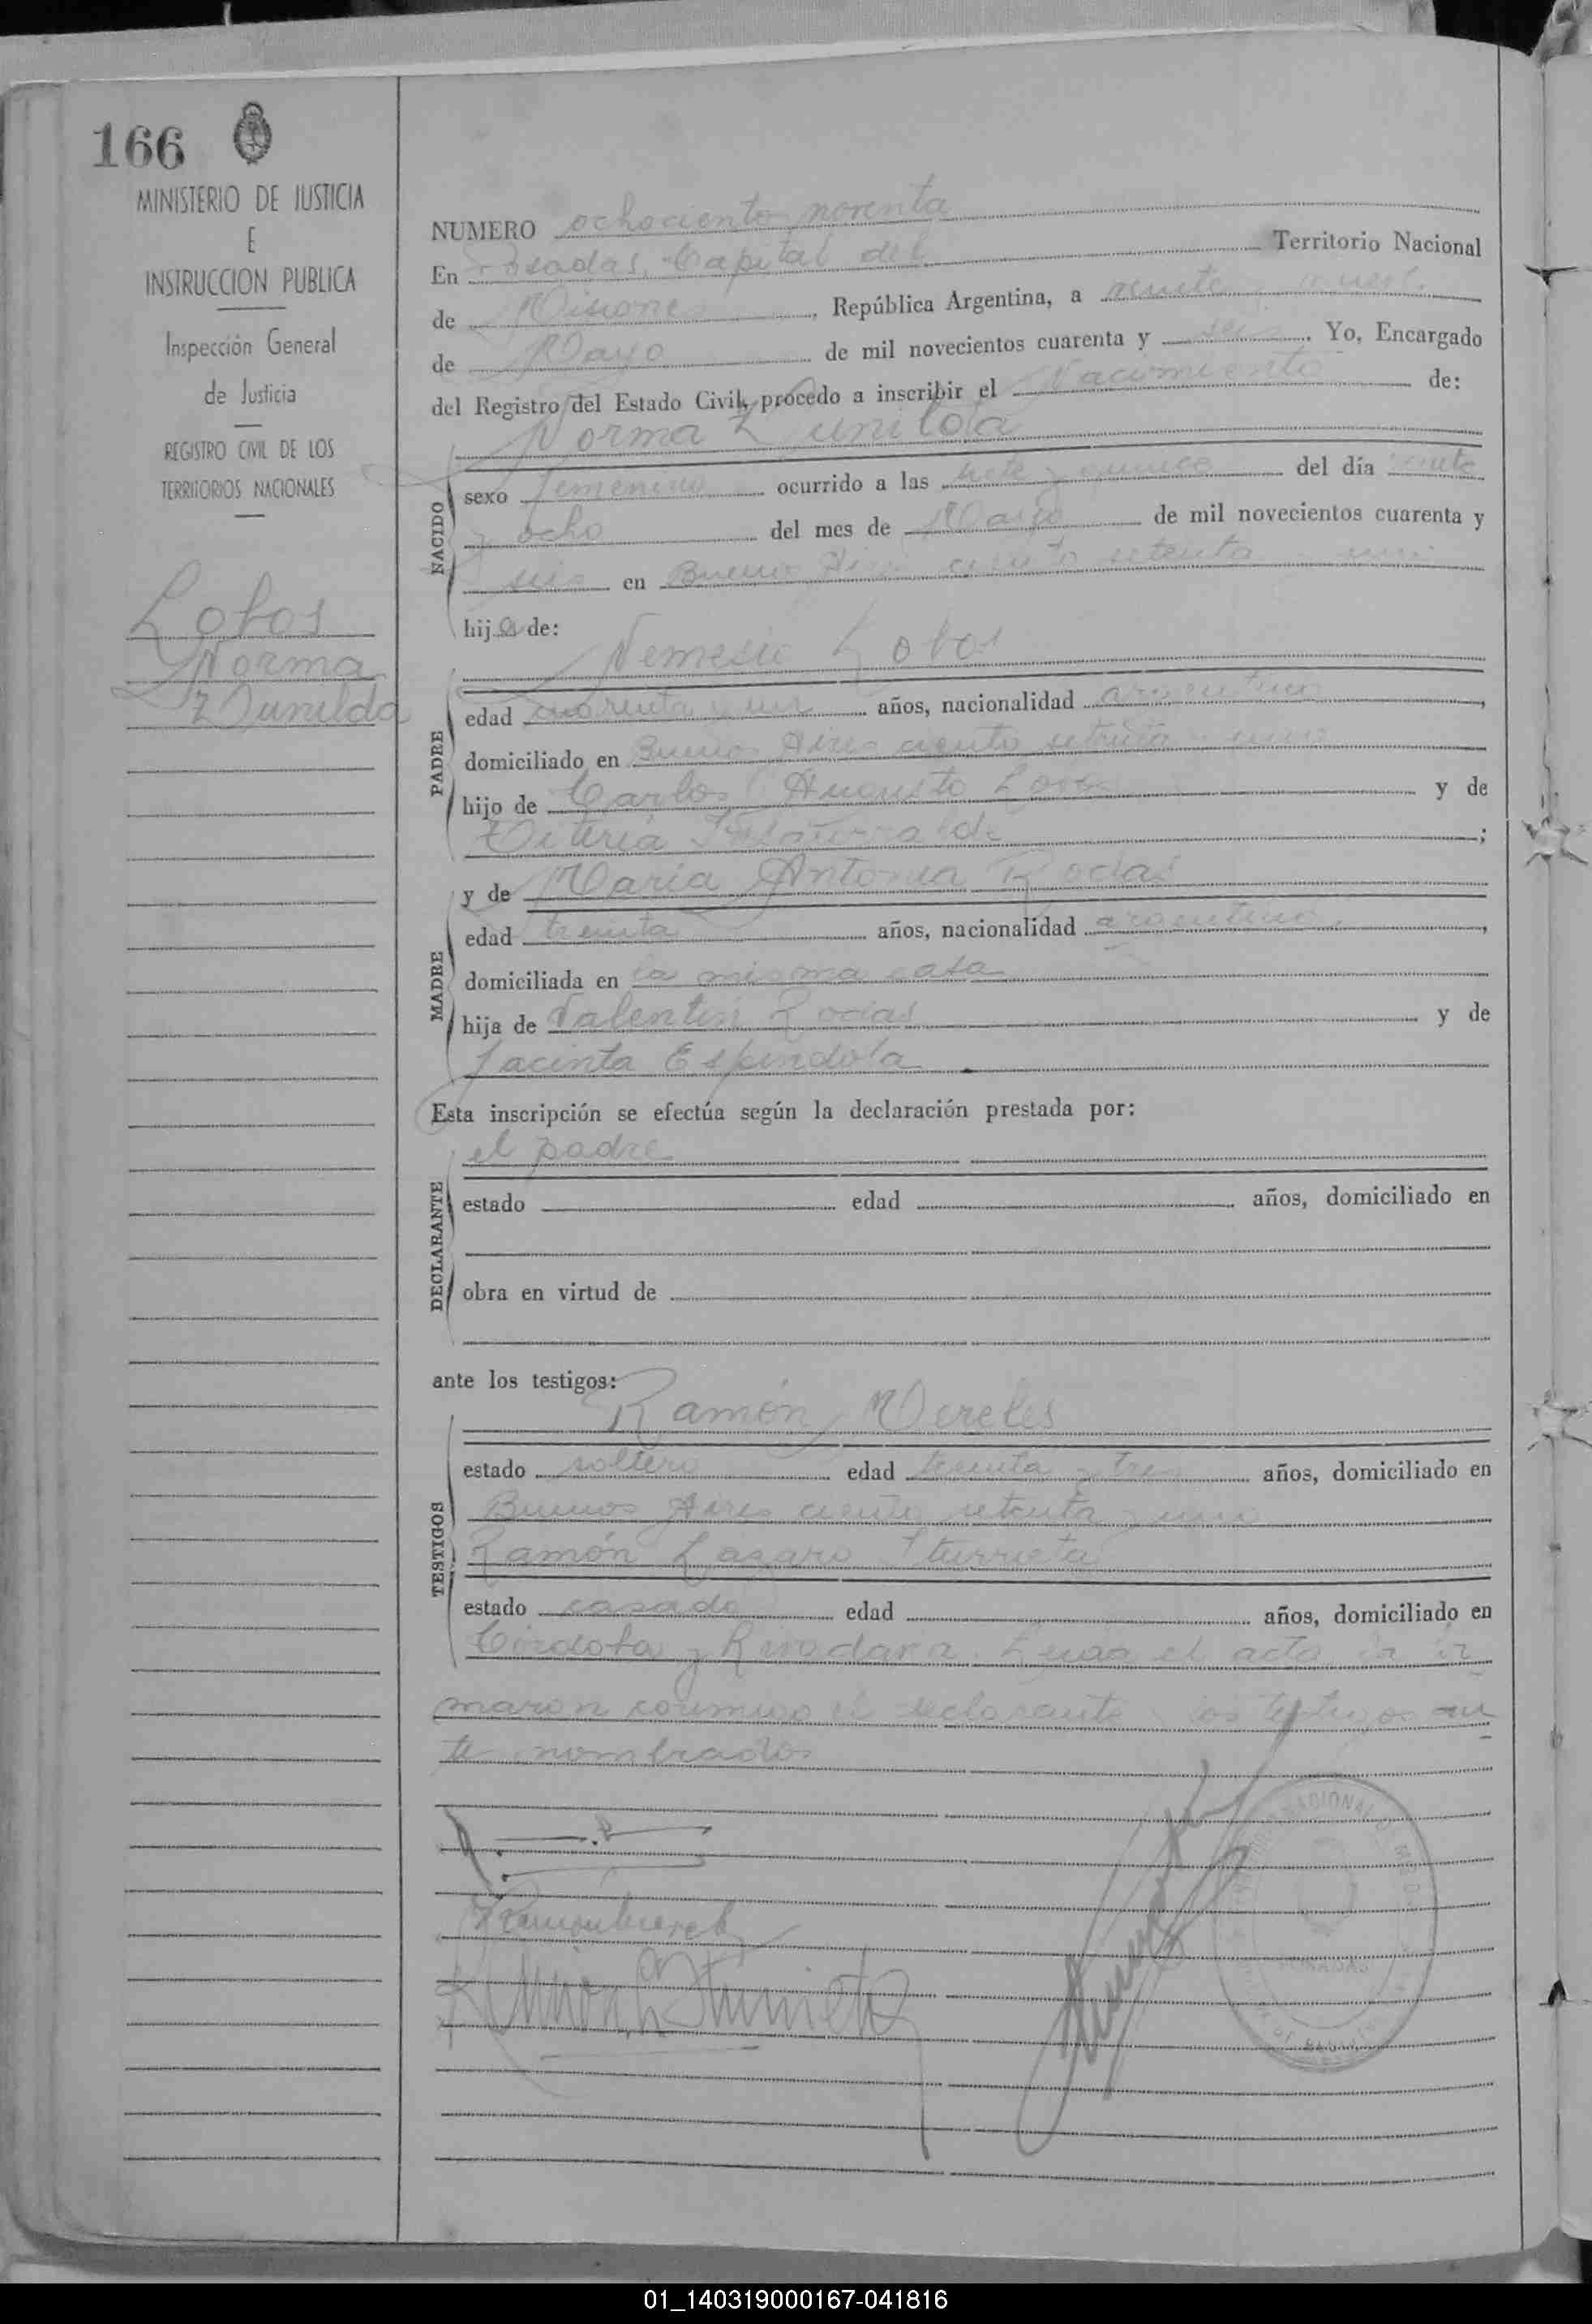 166
MINISTERIO DE JUSTICIA
E
INSTRUCCION PUBLICA
Inspección General
de Justicia
REGISTRO CIVIL DE LOS
TERRITORIOS NACIONALES
Lobos
Norma
Zunilda
NUMERO ochociento noventa
En Posadas, Capital del Territorio Nacional
de Misiones, República Argentina, a veinte y nueve
de Mayo de mil novecientos cuarenta y seis. Yo, Encargado
del Registro del Estado Civil, procedo a inscribir el Nacimiento de:
Norma Zunilda
NACIDO
sexo femenino ocurrido a las siete y quince del día veinte
y ocho del mes de Mayo de mil novecientos cuarenta y
seis en Buenos Aires ciento setenta y uno
hija de:
Nemesio Lobos
PADRE
edad cuarenta y un años, nacionalidad argentino,
domiciliado en Buenos Aires ciento setenta y uno
hijo de Carlos Augusto Lobos y de
;
y de María Antonia Rodas
MADRE
edad treinta años, nacionalidad argentina,
domiciliada en la misma casa
hija de Valentín Rodas y de
Jacinta Espindola
Esta inscripción se efectúa según la declaración prestada por:
el padre
DECLARANTE
estado edad años, domiciliado en
obra en virtud de
ante los testigos:
Ramón Mereles
TESTIGOS
estado soltero edad treinta y tres años, domiciliado en
Buenos Aires ciento setenta y uno
Ramón Lazaro Iturrieta
estado casado edad años, domiciliado en
Córdoba y Rivadavia. Leida el acta la fir
maron conmigo el declarante y los testigos an
te nombrados
01_140319000167-041816